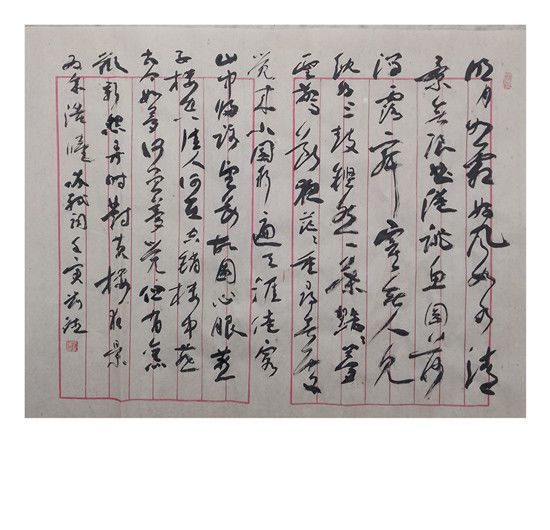 明月如霜好风如水清
景无限曲港跳鱼圆荷
泻露寂寞无人见
紞如三鼓铿然一叶黯黯梦
云惊断夜茫茫重寻无处
觉来小园行遍天涯倦客
山中归路望断故园心眼燕
子楼空佳人何在空锁楼中燕
古今如梦何曾梦觉但有旧
欢新怨异时对黄楼夜景
为余浩叹苏轼词壬寅